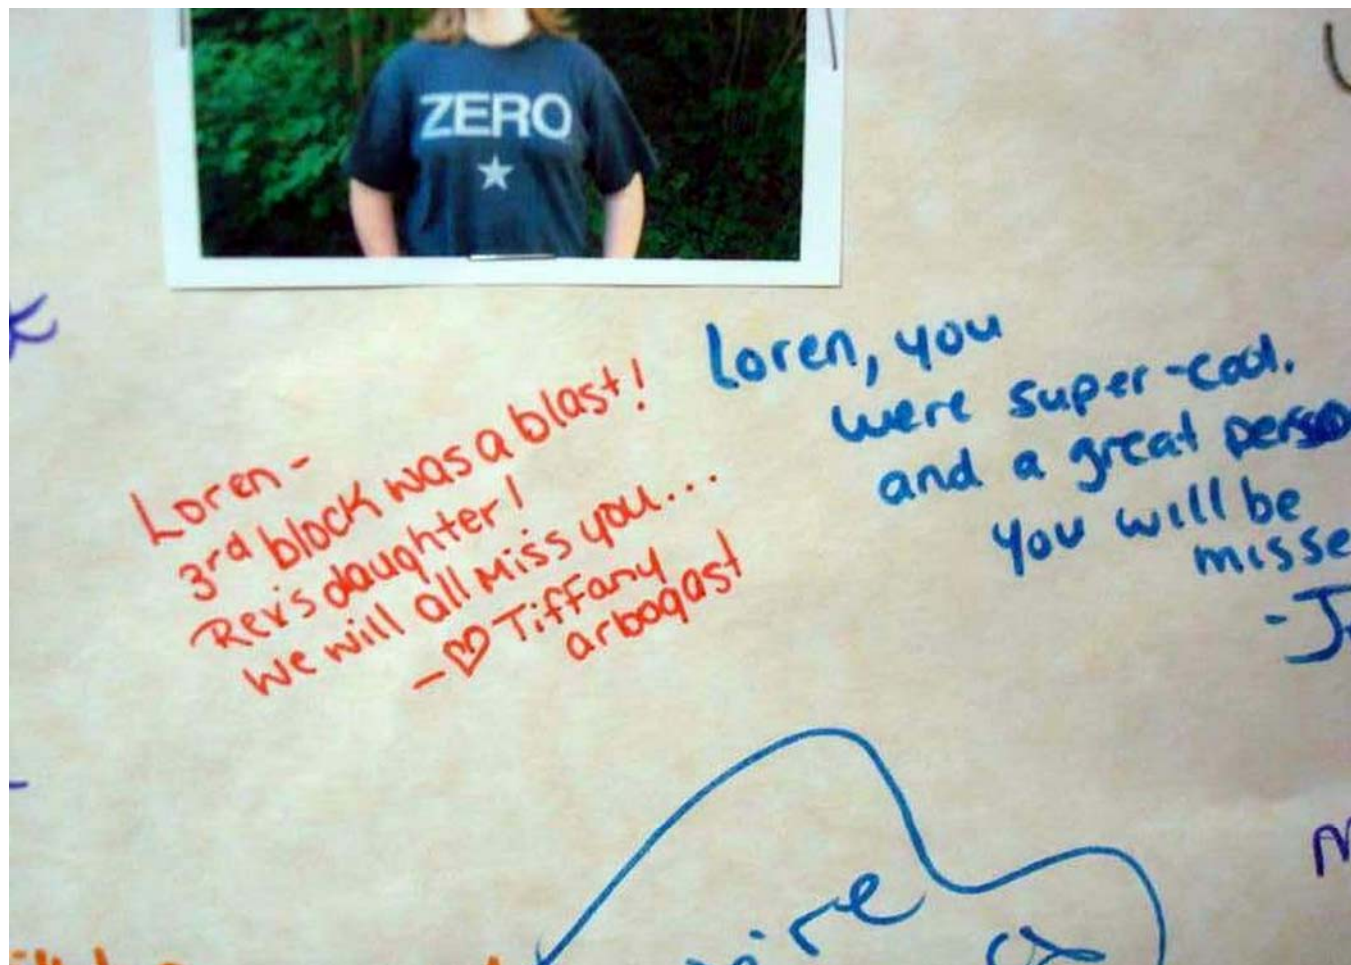 ZERO
Loren -
3rd block was a blast!
Rev's daughter!
we will all Miss you...
- ♡ Tiffany
arbogast
Loren, you
were super-cool.
and a great perso
you will be
misse
-J